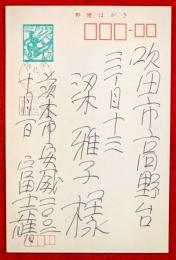 郵便はがき
吹田市高野台
三丁目十三
梁雅子様
茨木市安威二〇三
富士正晴